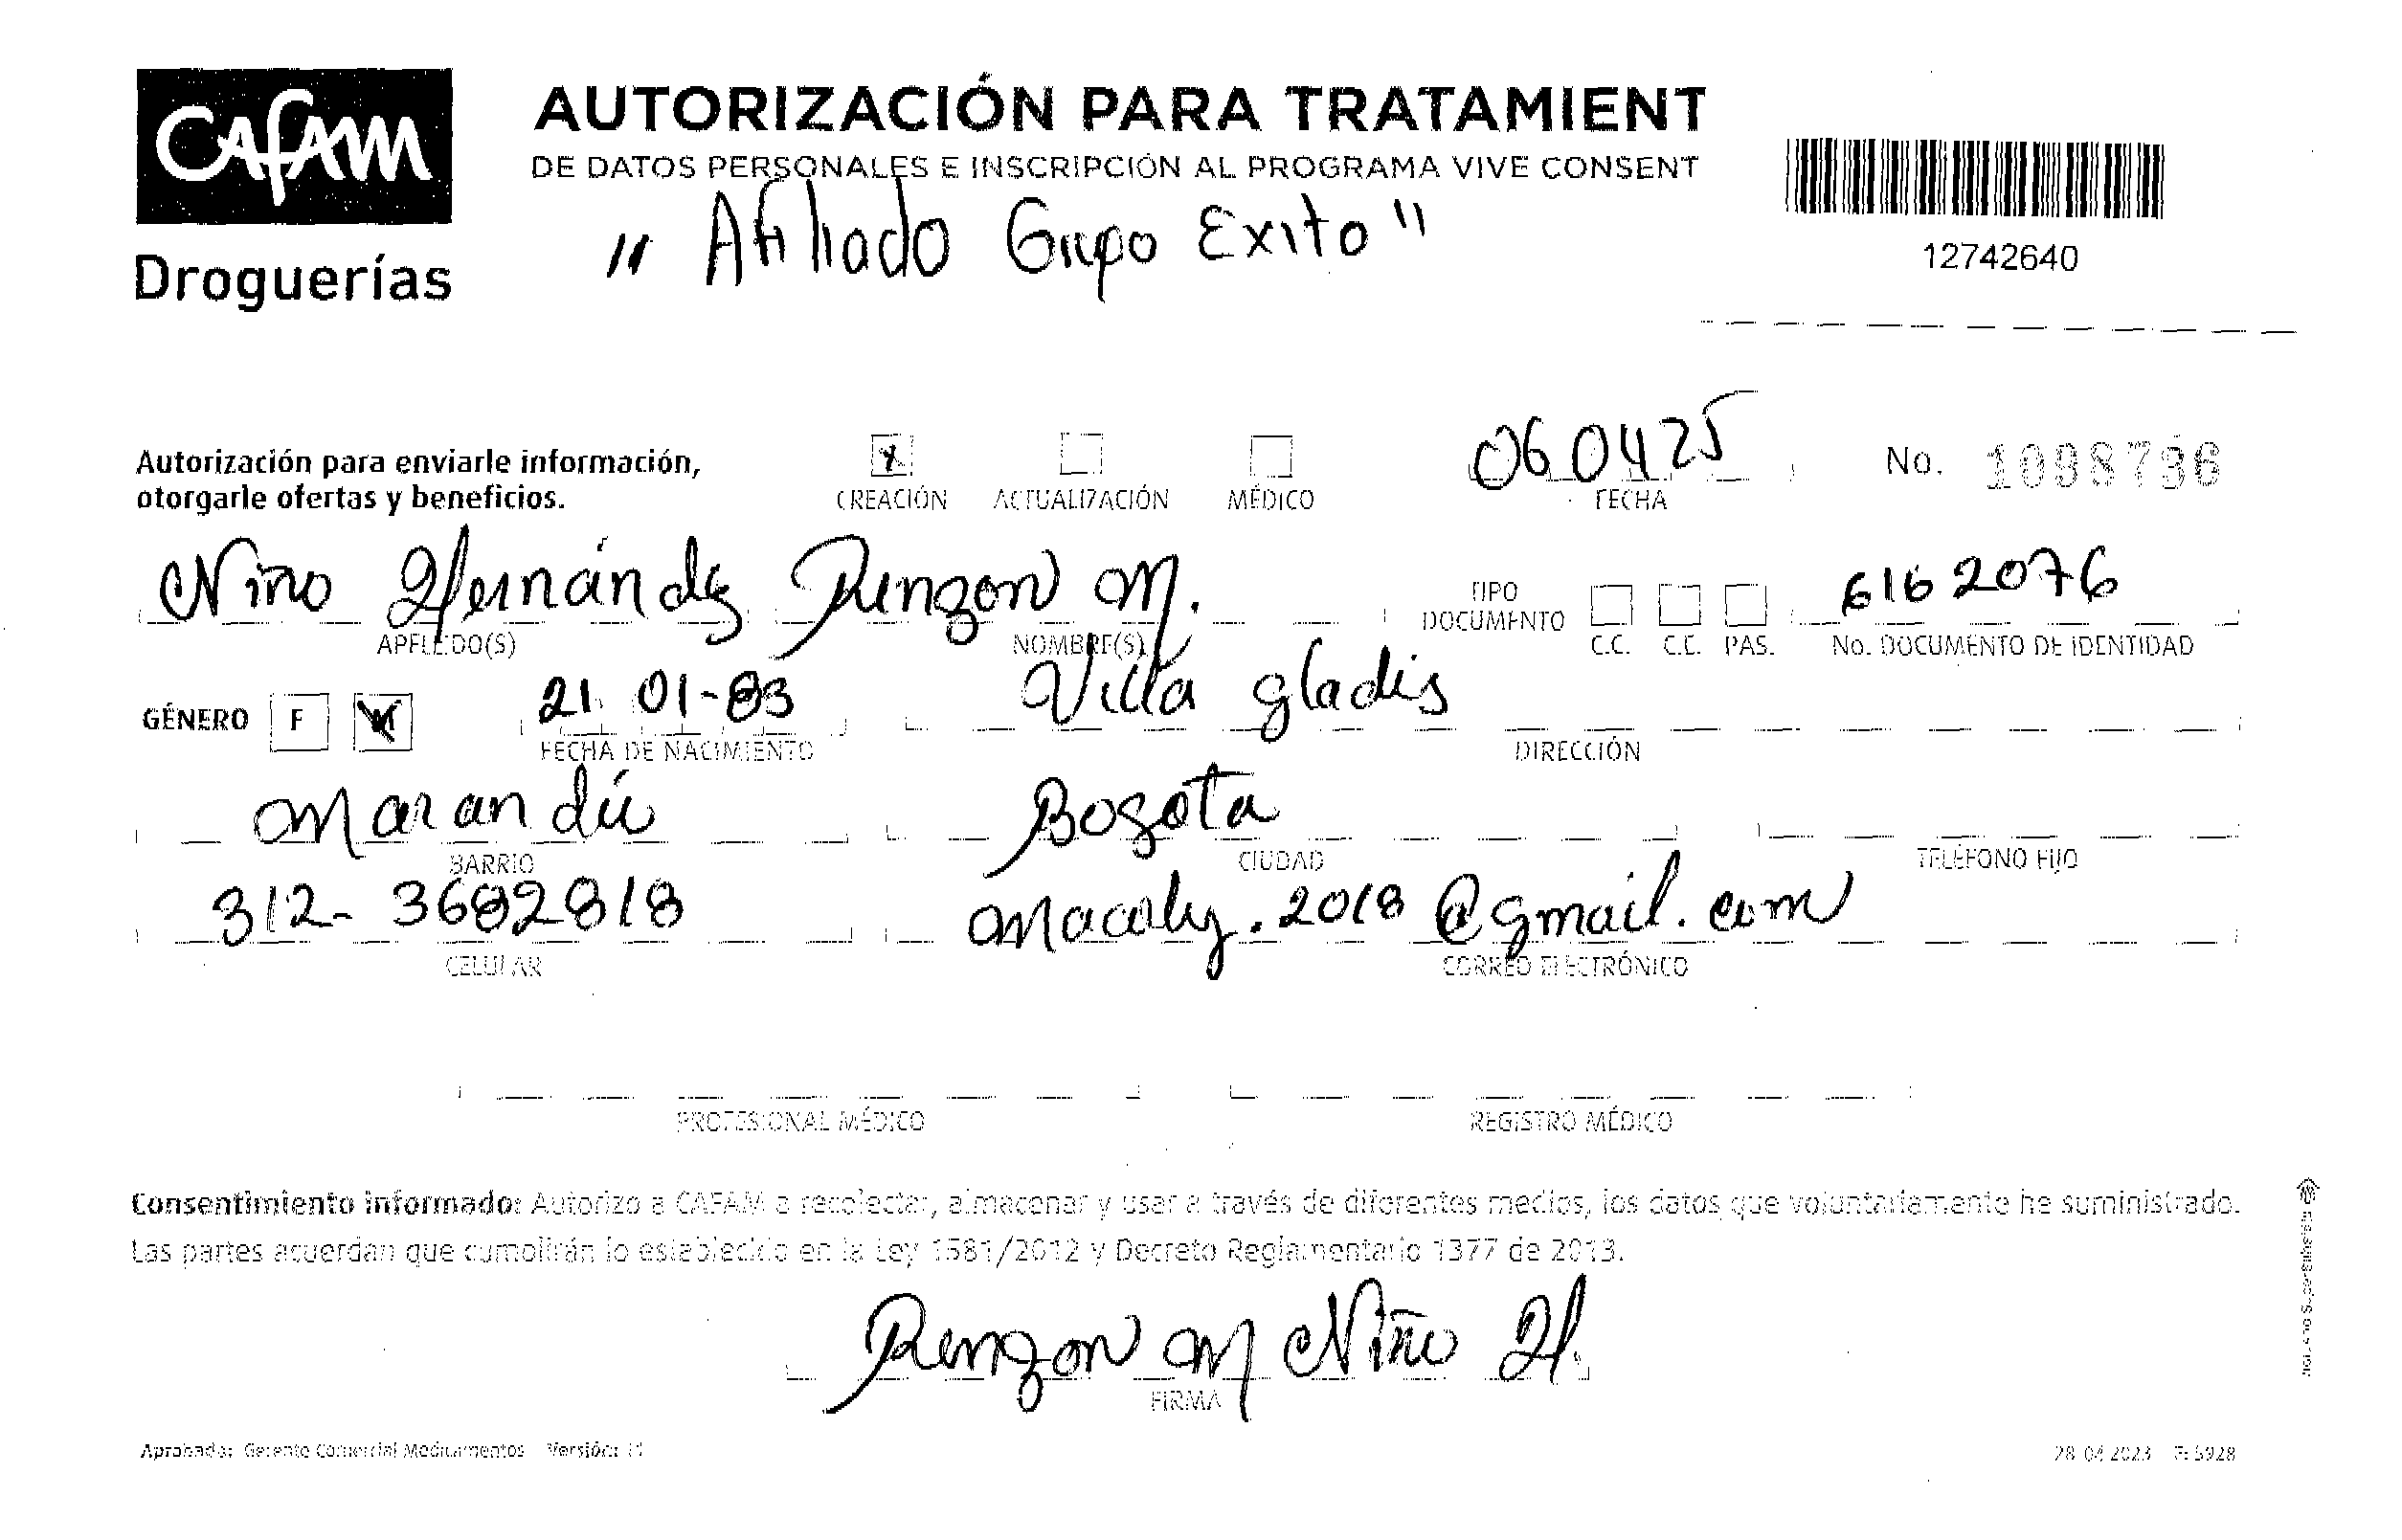 CAFAM
Droguerías
AUTORIZACIÓN PARA TRATAMIENT
DE DATOS PERSONALES E INSCRIPCIÓN AL PROGRAMA VIVE CONSENT
" Afiliado Grupo Exito "
12742640
Autorización para enviarle información,
otorgarle ofertas y beneficios.
X
CREACIÓN ACTUALIZACIÓN MÉDICO
060425
FECHA
No. 1098736
Nino Hernández Renzon M.
APELLIDO(S) NOMBRE(S)
TIPO
DOCUMENTO
C.C. C.E. PAS.
6162076
No. DOCUMENTO DE IDENTIDAD
GÉNERO F M
21 01-83
FECHA DE NACIMIENTO
Villa gladis
DIRECCIÓN
Marandú
BARRIO
Bogota
CIUDAD
TELÉFONO FIJO
312- 3682818
CELULAR
Macaly.2018@gmail.com
CORREO ELECTRÓNICO
PROFESIONAL MÉDICO REGISTRO MÉDICO
Consentimiento informado: Autorizo a CAFAM a recolectar, almacenar y usar a través de diferentes medios, los datos que voluntariamente he suministrado.
Las partes acuerdan que cumplirán lo establecido en la Ley 1581/2012 y Decreto Reglamentario 1377 de 2013.
Renzon M Niño H.
FIRMA
Aprobado: Gerente Comercial Medicamentos Versión: 11
28 04 2023 F: 5928